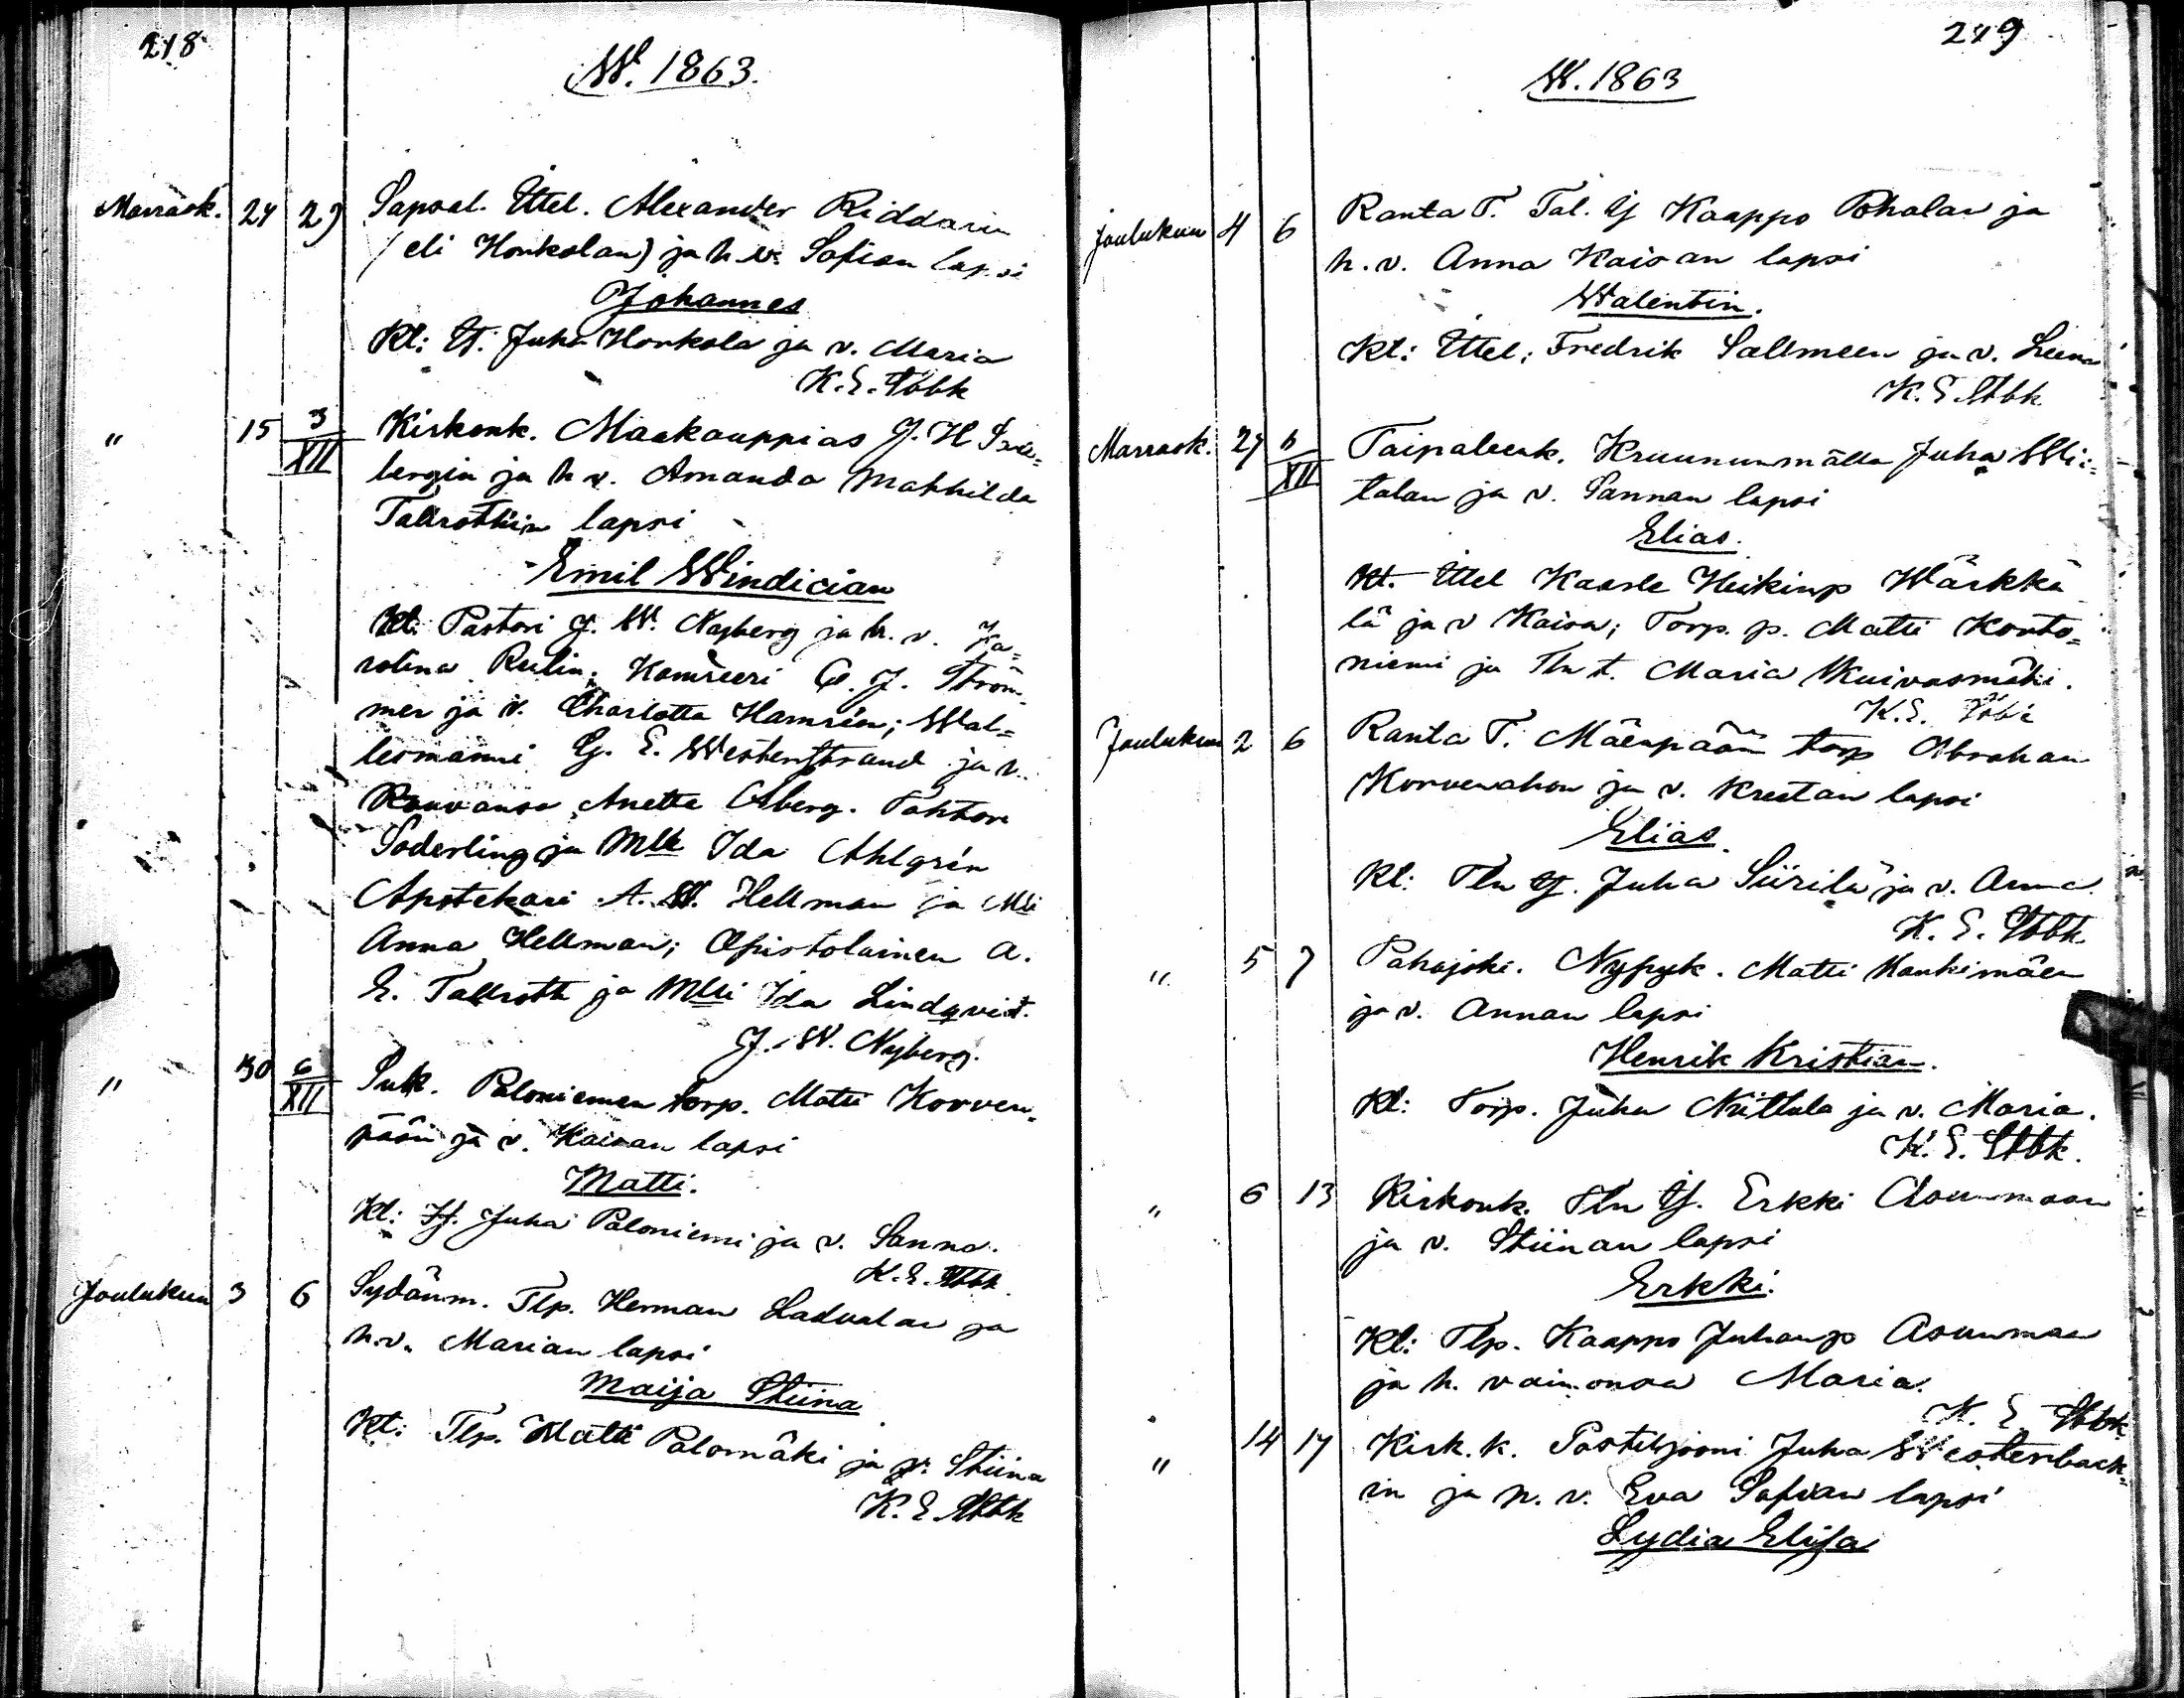 218
W. 1863.
Marrask. 24 29 Sapsal. Ittel. Alexander Riddarin
(eli Honkolan) ja h. v. Sofian lapsi
Johannes
Kt: It. Juha Honkola ja v. Maria
K. E. Stbk
" 15 3/XII Kirkonk. Maakauppias J. H
bergin ja h v. Amanda Mathilda
Tallrothin lapsi
Emil Windician
Kt: Pastori J. W. Nyberg ja h. v. Ka=
rolina; Kamreeri J. Ström=
mer ja v. Charlotta Hamrén; Wal=
lesmanni G. E. Westerstrand ja v.
Rouvansa Anetta Åberg. Tohtori
Söderling ja Mlle Ida Ahlgrén
Apotekari A. W. Hellman ja Mlli
Anna Hellman; Opistolainen A.
E. Tallroth ja Mlli Ida Lindqvist.
J. W. Nyberg.
" 30 6/XII Suk. Paloniemen torp. Matti Korven=
pään ja v. Kaisan lapsi
Matti.
Kt: Juha Paloniemi ja v. Sanna.
K. E. Stbk.
Joulukuu 3 6 Sydänm. Tlp. Herman Ladvalan ja
h. v. Marian lapsi
Maija Stiina
Kt: Tlp. Matti Palomäki ja v. Stiina
K. E. Stbk
219
W. 1863
Joulukuu 4 6 Ranta T. Tal. Kaappo Pohalan ja
h. v. Anna Kaisan lapsi
Walentin.
Kt: Ittel; Fredrik Sallmeen ja v. Leena
K. E. Stbk
Marrask. 27 XII Taipaleenk. Kruununmälla Juha Wii=
talan ja v. Sannan lapsi
Elias.
Kt. Ittel Kaarle Heikinp Wärkkä
lä ja v Kaisa; Torp. p. Matti Konto=
niemi ja Tln t. Maria Kuivasmäki.
K. E. Stbk
Joulukuu 2 6 Ranta T. Mäenpään torp Abraham
Korvenahon ja v. Kreetan lapsi
Elias.
Kt: Tln Juha Siirilä ja v. Anna.
K. E. Stbk
" 5 7 Pahajoki. Nypyk. Matti Kaukimäen
ja v. Annan lapsi
Henrik Kristian.
Kt: Torp. Juha Niittula ja v. Maria.
K. E. Stbk.
" 6 13 Kirkonk. Tln Erkki Asunmaan
ja v. Stiinan lapsi
Erkki.
Kt: Tlp. Kaappo Juhanp Asunmaa
ja h. vaimonsa Maria.
K. E. Stbk
" 14 17 Kirk. k. Postiljooni Juha Westerback=
in ja h. v. Eva Sofian lapsi
Lydia Elisa